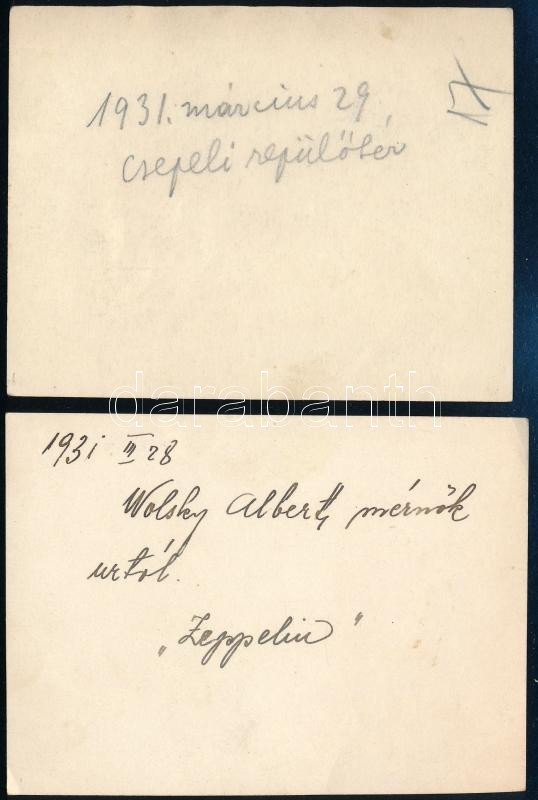 1931. március 29
17
csepeli repülőtér
darabanth
1931 III 28
Wolsky Albert, mérnök
urtól.
„Zeppelin"